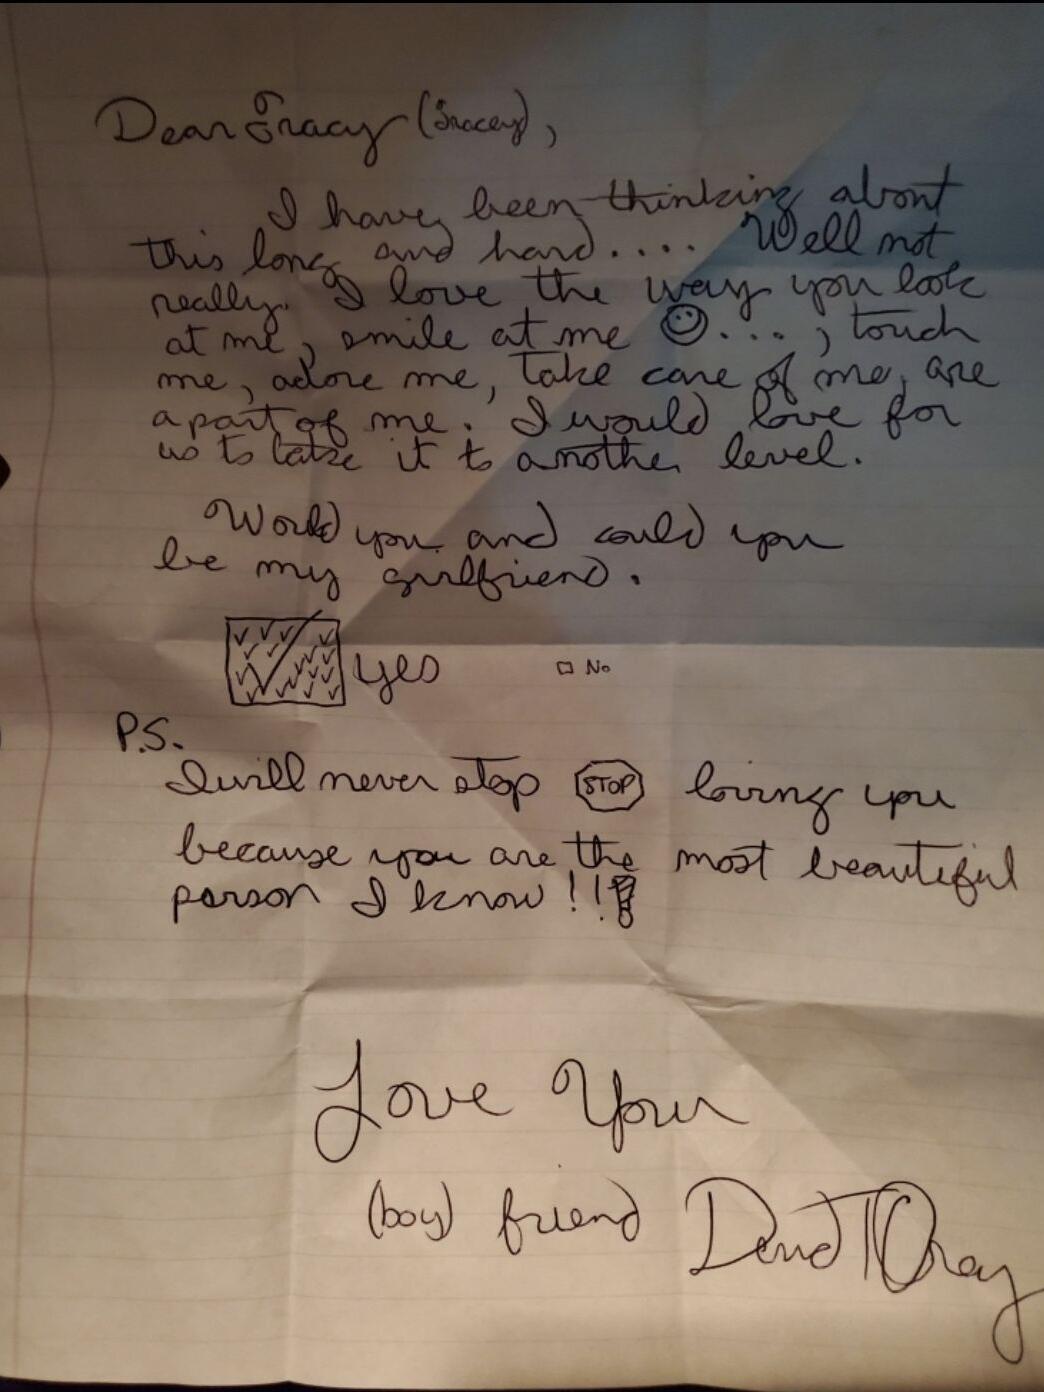 Dear Tracy (Tracey),
I have been thinking about
this long and hard.... Well not
really. I love the way you look
at me, smile at me ☺...., touch
me, adore me, take care of me, are
a part of me. I would love for
us to take it to another level.
Would you and could you
be my girlfriend.
yes No
P.S.
I will never stop STOP loving you
because you are the most beautiful
person I know!!!
Love Your
(boy) friend David